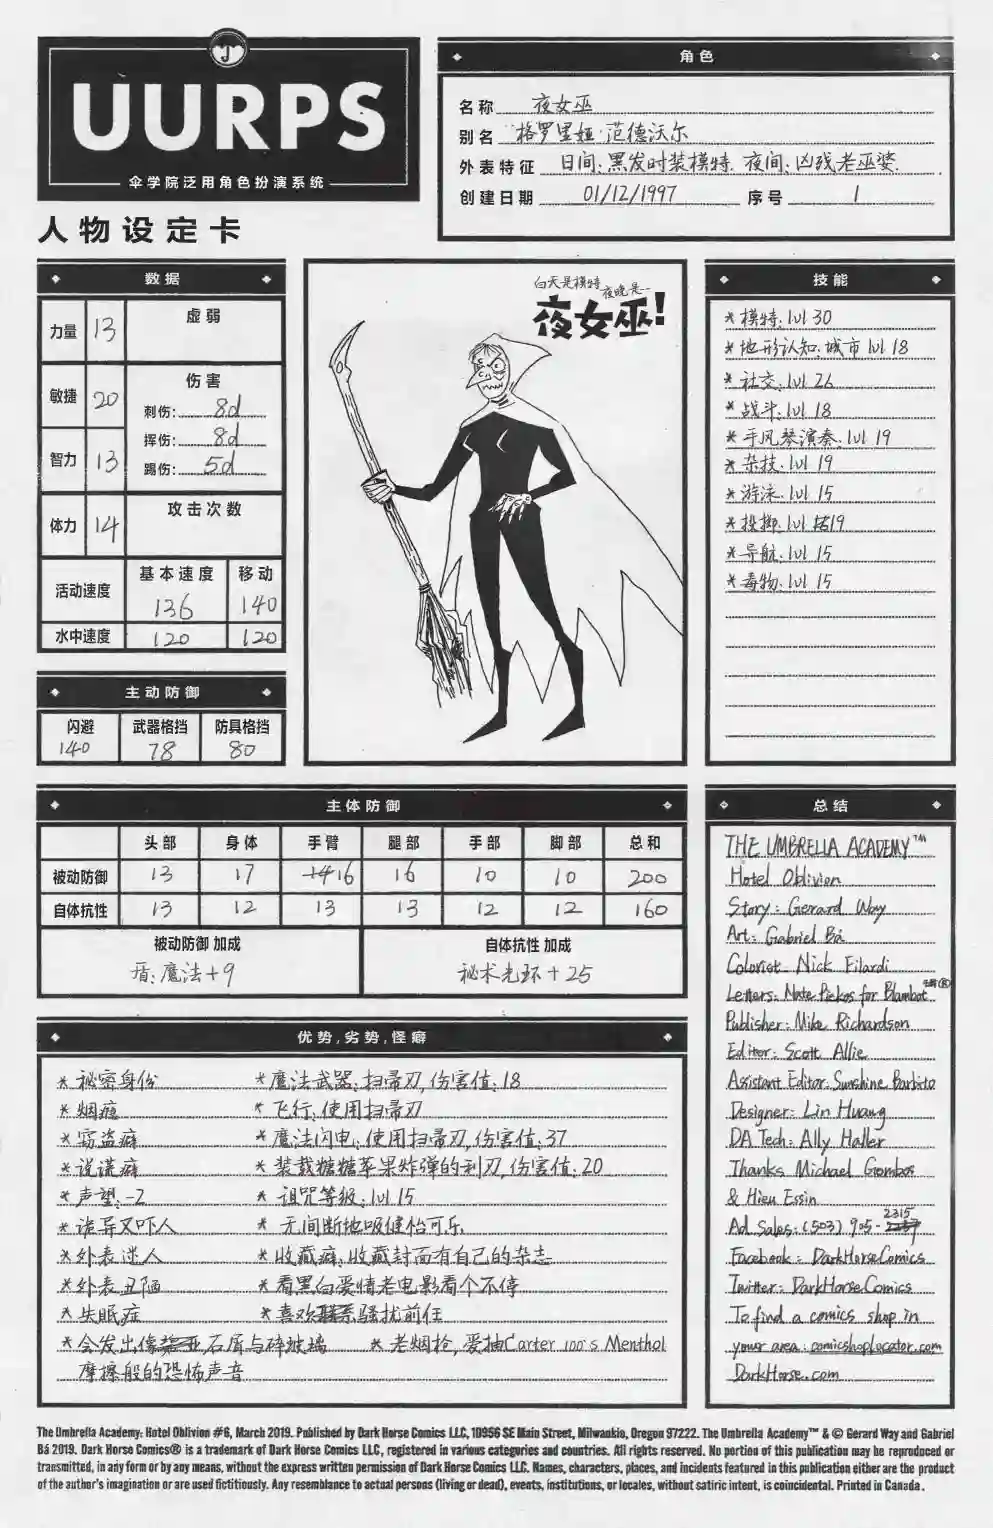 UURPS
伞学院泛用角色扮演系统
人物设定卡
角色
名称 夜女巫
别名 格罗里娅·范德沃尔
外表特征 日间:黑发时装模特. 夜间:凶残老巫婆.
创建日期 01/12/1997 序号 1
数据
力量 13 虚弱
敏捷 20 伤害
刺伤: 8d
挥伤: 8d
智力 13 踢伤: 5d
体力 14 攻击次数
活动速度 基本速度 136 移动 140
水中速度 120 120
主动防御
闪避 武器格挡 防具格挡
140 78 80
白天是模特 夜晚是…
夜女巫!
技能
* 模特: lvl 30
* 地形认知:城市 lvl 18
* 社交: lvl 26
* 战斗: lvl 18
* 手风琴演奏: lvl 19
* 杂技: lvl 19
* 游泳: lvl 15
* 投掷: lvl 19
* 导航: lvl 15
* 毒物: lvl 15
主体防御
头部 身体 手臂 腿部 手部 脚部 总和
被动防御 13 17 14 16 16 10 10 200
自体抗性 13 12 13 13 12 12 160
被动防御 加成 自体抗性 加成
盾:魔法+9 秘术光环+25
优势,劣势,怪癖
* 秘密身份 * 魔法武器:扫帚刃,伤害值:18
* 烟瘾 * 飞行:使用扫帚刃
* 窃盗癖 * 魔法闪电:使用扫帚刃,伤害值:37
* 说谎癖 * 装载糖糖苹果炸弹的利刃,伤害值:20
* 声望:-2 * 诅咒等级:lvl 15
* 诡异又吓人 * 无间断地吸健怡可乐
* 外表迷人 * 收藏癖:收藏封面有自己的杂志
* 外表丑陋 * 看黑白爱情老电影看个不停
* 失眠症 * 喜欢骚扰前任
* 会发出像石屑与碎玻璃 * 老烟枪,爱抽Carter 100's Menthol
摩擦般的恐怖声音
总结
THE UMBRELLA ACADEMY™
Hotel Oblivion
Story: Gerard Way
Art: Gabriel Bá
Colorist: Nick Filardi
Letters: Nate Piekos for Blambot®
Publisher: Mike Richardson
Editor: Scott Allie
Assistant Editor: Sunshine Barbito
Designer: Lin Huang
DA Tech: Ally Haller
Thanks Michael Gombos
& Hieu Essin
Ad Sales: (503) 905-2237 2315
Facebook: DarkHorseComics
Twitter: DarkHorseComics
To find a comics shop in
your area: comicshoplocator.com
DarkHorse.com
The Umbrella Academy: Hotel Oblivion #6, March 2019. Published by Dark Horse Comics LLC, 10956 SE Main Street, Milwaukie, Oregon 97222. The Umbrella Academy™ & © Gerard Way and Gabriel
Bá 2019. Dark Horse Comics® is a trademark of Dark Horse Comics LLC, registered in various categories and countries. All rights reserved. No portion of this publication may be reproduced or
transmitted, in any form or by any means, without the express written permission of Dark Horse Comics LLC. Names, characters, places, and incidents featured in this publication either are the product
of the author's imagination or are used fictitiously. Any resemblance to actual persons (living or dead), events, institutions, or locales, without satiric intent, is coincidental. Printed in Canada.